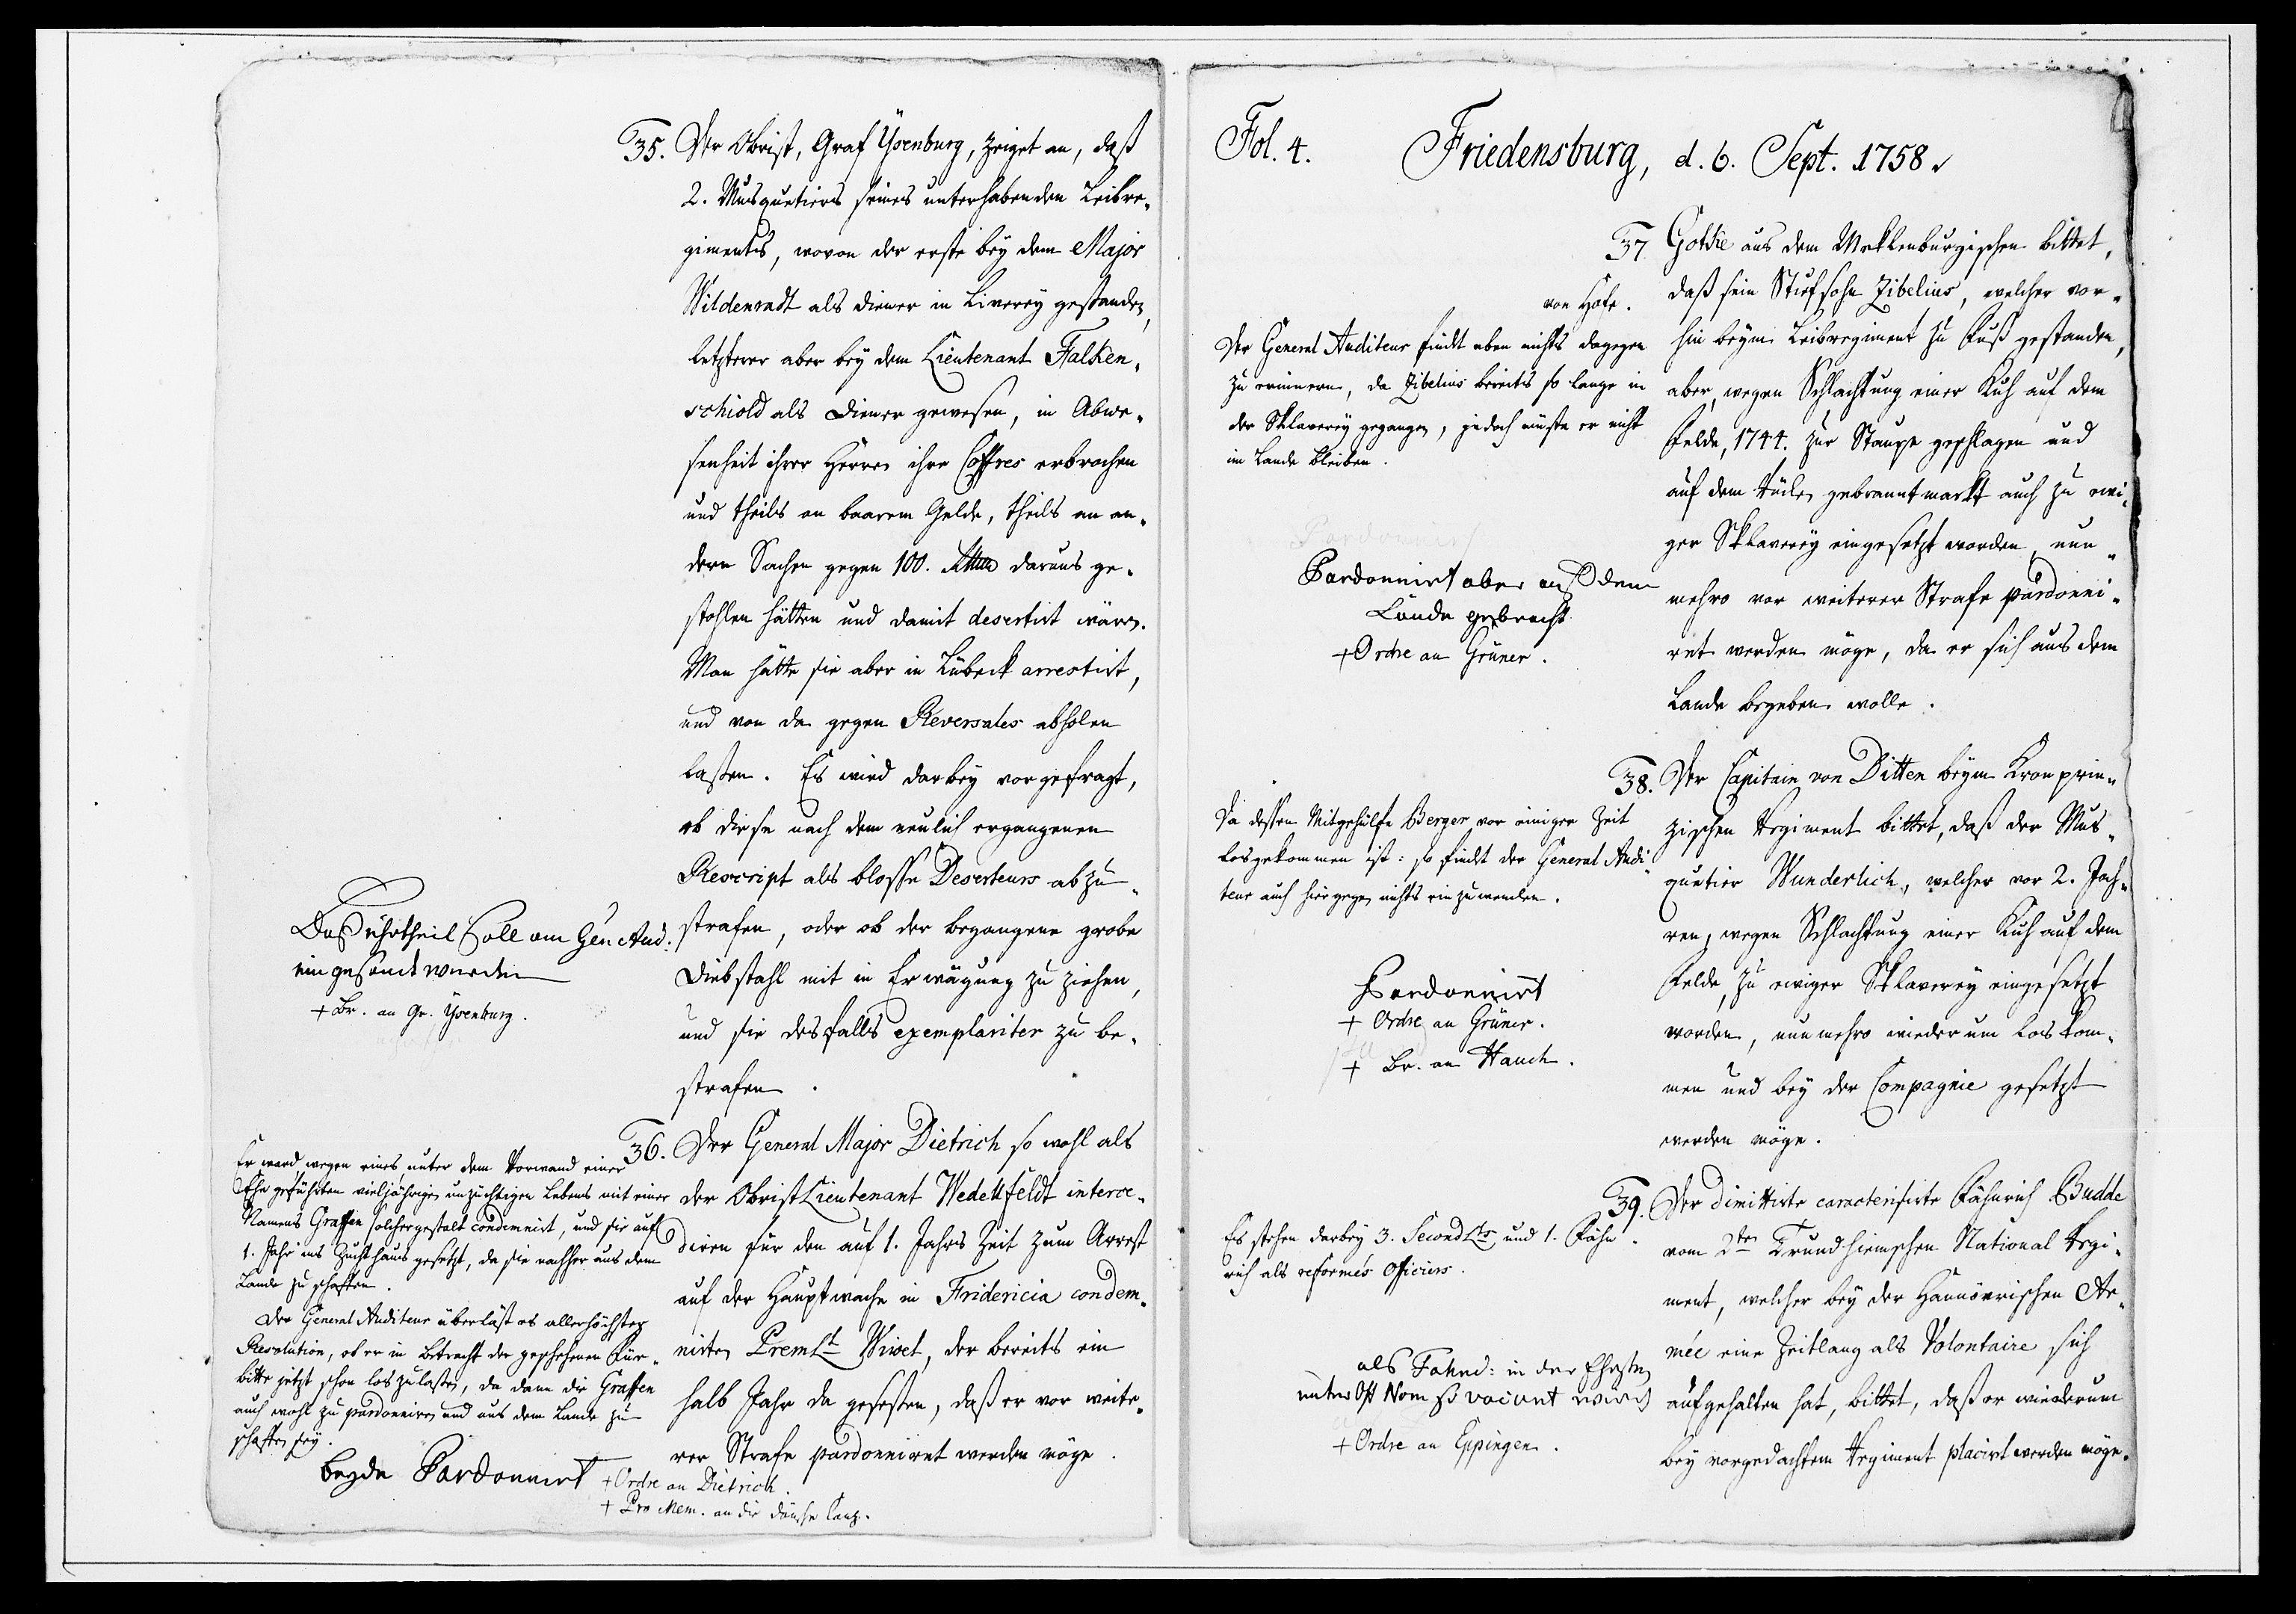 35. Der Obrist, Graf Ysenburg, zeiget an, daß
2. Musquetiers seines unterhabenden Leibre-
giments, wovon der erste bey dem Major
Wildenradt als Diener in Liverey gestanden,
letzterer aber bey dem Lieutenant Falken-
schiold als Diener gewesen, in Abwe-
senheit ihrer Herren ihre Coffres erbrochen
und theils an baarem Gelde, theils an an-
dern Sachen gegen 100. daraus ge-
stohlen hätten und damit desertirt wären.
Man hätte sie aber in Lübeck arrestirt,
und von da gegen Reversales abholen
lassen. Es wird darbey vorgefragt,
ob diese nach dem neulich ergangenen
Rescript als blosse Deserteurs abzu-
strafen, oder ob der begangene grobe
Diebstahl mit in Erwägung zu ziehen,
und sie desfalls exemplariter zu be-
strafen.
Das uhrtheil soll am Gen Aud:
ein gesandt werden
+ Br. an Gr. Ysenburg.
36. Der General Major Dietrich so wohl als
der ObristLieutenant Wedellfeldt interce-
diren für den auf 1. Jahrs Zeit zum Arrest
auf der Hauptwache in Fridericia condem-
nirten Premlt Wivet, der bereits ein
halb Jahr da gesessen, daß er vor weite-
rer Strafe pardonniret werden möge.
Er ward, wegen eines, unter dem Vorwand einer
Ehe geführten vieljährigen unzüchtigen Lebens mit einer
Namens Graffen solchergestalt condemnirt, und sie auf
1. Jahr ins Zuchthaus gesetzt, da sie nachher aus dem
Lande zu schaffen.
Der General Auditeur überläst es allerhöchster
Resolution, ob er in Betracht der geschehenen Für-
bitte jetzt schon loszulassen, da dann die Graffen
auch wohl zu pardonniren und aus dem Lande zu
schaffen sey.
beyde Pardonnirt
+ Ordre an Dietrich.
+ Pro Mem. an die dänsche Canz.
Fol. 4. Friedensburg, d. 6. Sept. 1758.
37. Gothe aus dem Meklenburgischen bittet,
daß sein Stiefsohn Zibelius, welcher vor-
hin beym Leibregiment zu Fuß gestanden,
aber, wegen Schlachtung einer Kuh auf dem
Felde, 1744. zur Staupe geschlagen und
auf dem Rücken gebranntmarkt auch zu ewi-
ger Sklaverey eingesetzt worden, nun-
mehro vor weiterer Strafe pardonni-
ret werden möge, da er sich aus dem
Lande begeben wolle.
von Hofe.
Der General Auditeur findt eben nichts dagegen
zu erinnern, da Zibelius bereits so lange in
der Sklaverey gegangen, jedoch müste er nicht
im Lande bleiben.
Pardonnirt aber auß dem
Lande gebracht
+ Ordre an Grüner.
38. Der Capitain von Ditten beym Kronprin-
zischen Regiment bittet, daß der Mus-
quetier Wunderlich, welcher vor 2. Jah-
ren, wegen Schlachtung einer Kuh auf dem
Felde, zu ewiger Sklaverey eingesetzt
worden, nunmehro wiederum los kom-
men und bey der Compagnie gesetzt
werden möge.
Da dessen Mitgehülfe Berger vor einiger Zeit
losgekommen ist: so findt der General Audi-
teur auch hiergegen nichts einzuwenden.
Pardonnirt
+ Ordre an Grüner.
+ Br. an Hauch.
39. Der dimittirte caracterisirte Fähnrich Budde
vom 2ten Trundhiemschen National Regi-
ment, welcher bey der Hannövrischen Ar-
mée eine Zeitlang als Volontaire sich
aufgehalten hat, bittet, daß er wiederum
bey vorgedachtem Regiment placirt werden möge.
Es stehen darbey 3. SecondLts und 1. Fähn-
rich als reformés Officiers.
als Fahnd: in der Ehrsten
vacant wird
+ Ordre an Eppingen.